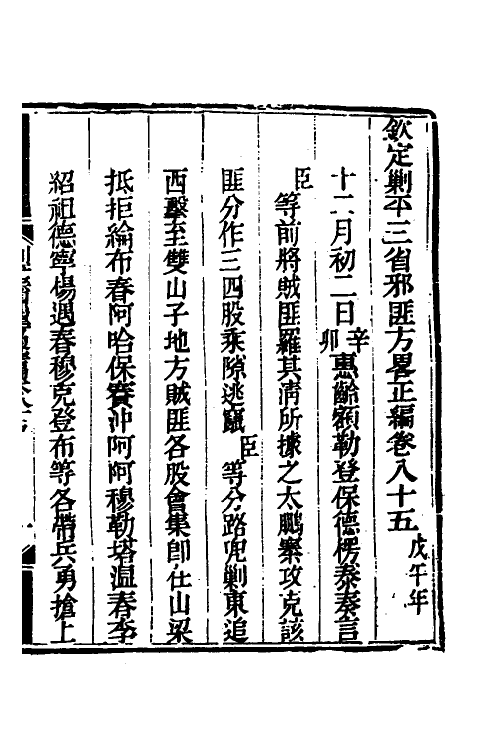 欽定剿平三省邪匪方畧正編卷八十五戊午年
十二月初二日辛卯惠齡額勒登保德楞泰奏言
臣等前將賊匪羅其淸所據之太鵬寨攻克該
匪分作三四股乘隙逃竄臣等分路兜剿東追
西擊至雙山子地方賊匪各股會集卽在山梁
抵拒綸布春阿哈保賽沖阿阿穆勒塔溫春李
紹祖德寧楊遇春穆克登布等各帶兵勇搶上